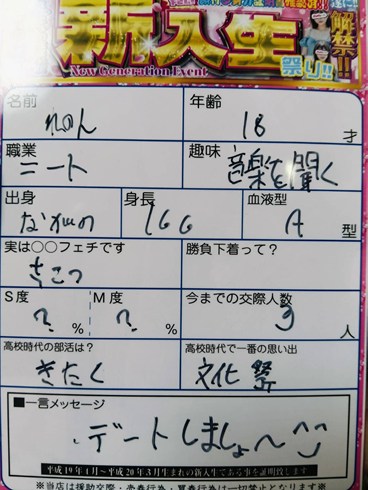 新入生
解禁!!
New Generation Event
祭り!!
名前
れのん
年齢
18 才
職業
ニート
趣味
音楽を聞く
出身
ながの
身長
166
血液型
A 型
実は○○フェチです
さこつ
勝負下着って?
S度
? %
M度
? %
今までの交際人数
3 人
高校時代の部活は?
きたく
高校時代で一番の思い出
文化祭
■一言メッセージ
デートしましょ〜^^
平成19年4月〜平成20年3月生まれの新入生である事を証明致します
※当店は援助交際・売春行為・買春行為は一切禁止となります